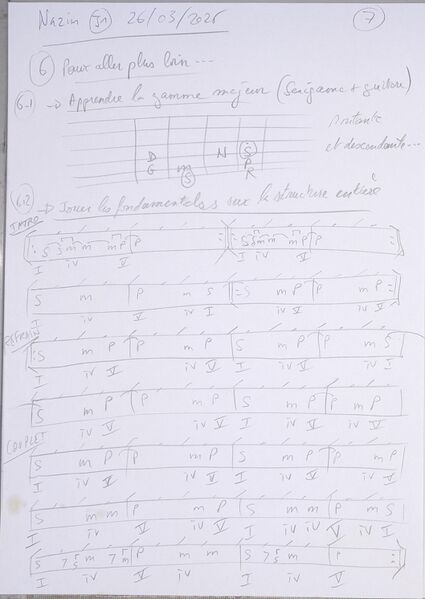 Nazim J1 26/03/2025 7
6 Pour aller plus loin...
6-1 -> Apprendre la gamme majeur (Serigamme + guitare)
montante
et descendante...
D N S
G m P
S R
6-2 -> Jouer les fondamentales sur la structure entière
INTRO
S S m m m P P S S m m m P P
I iv V I iv V
S m P m S S m P P m P
I iv V iv I I iv V iv V
REFRAIN
S m P P m P S m P P m S
I iv V iv V I iv V iv I
S m P P m P S m P P m P
I iv V iv V I iv V iv V
COUPLET
S m P P m P S m P P m P
I iv V iv V I iv V iv V
S m m P m P S m m P m S
I iv V iv V I iv iv V iv I
S m P m m S m P
I iv V iv I iv V